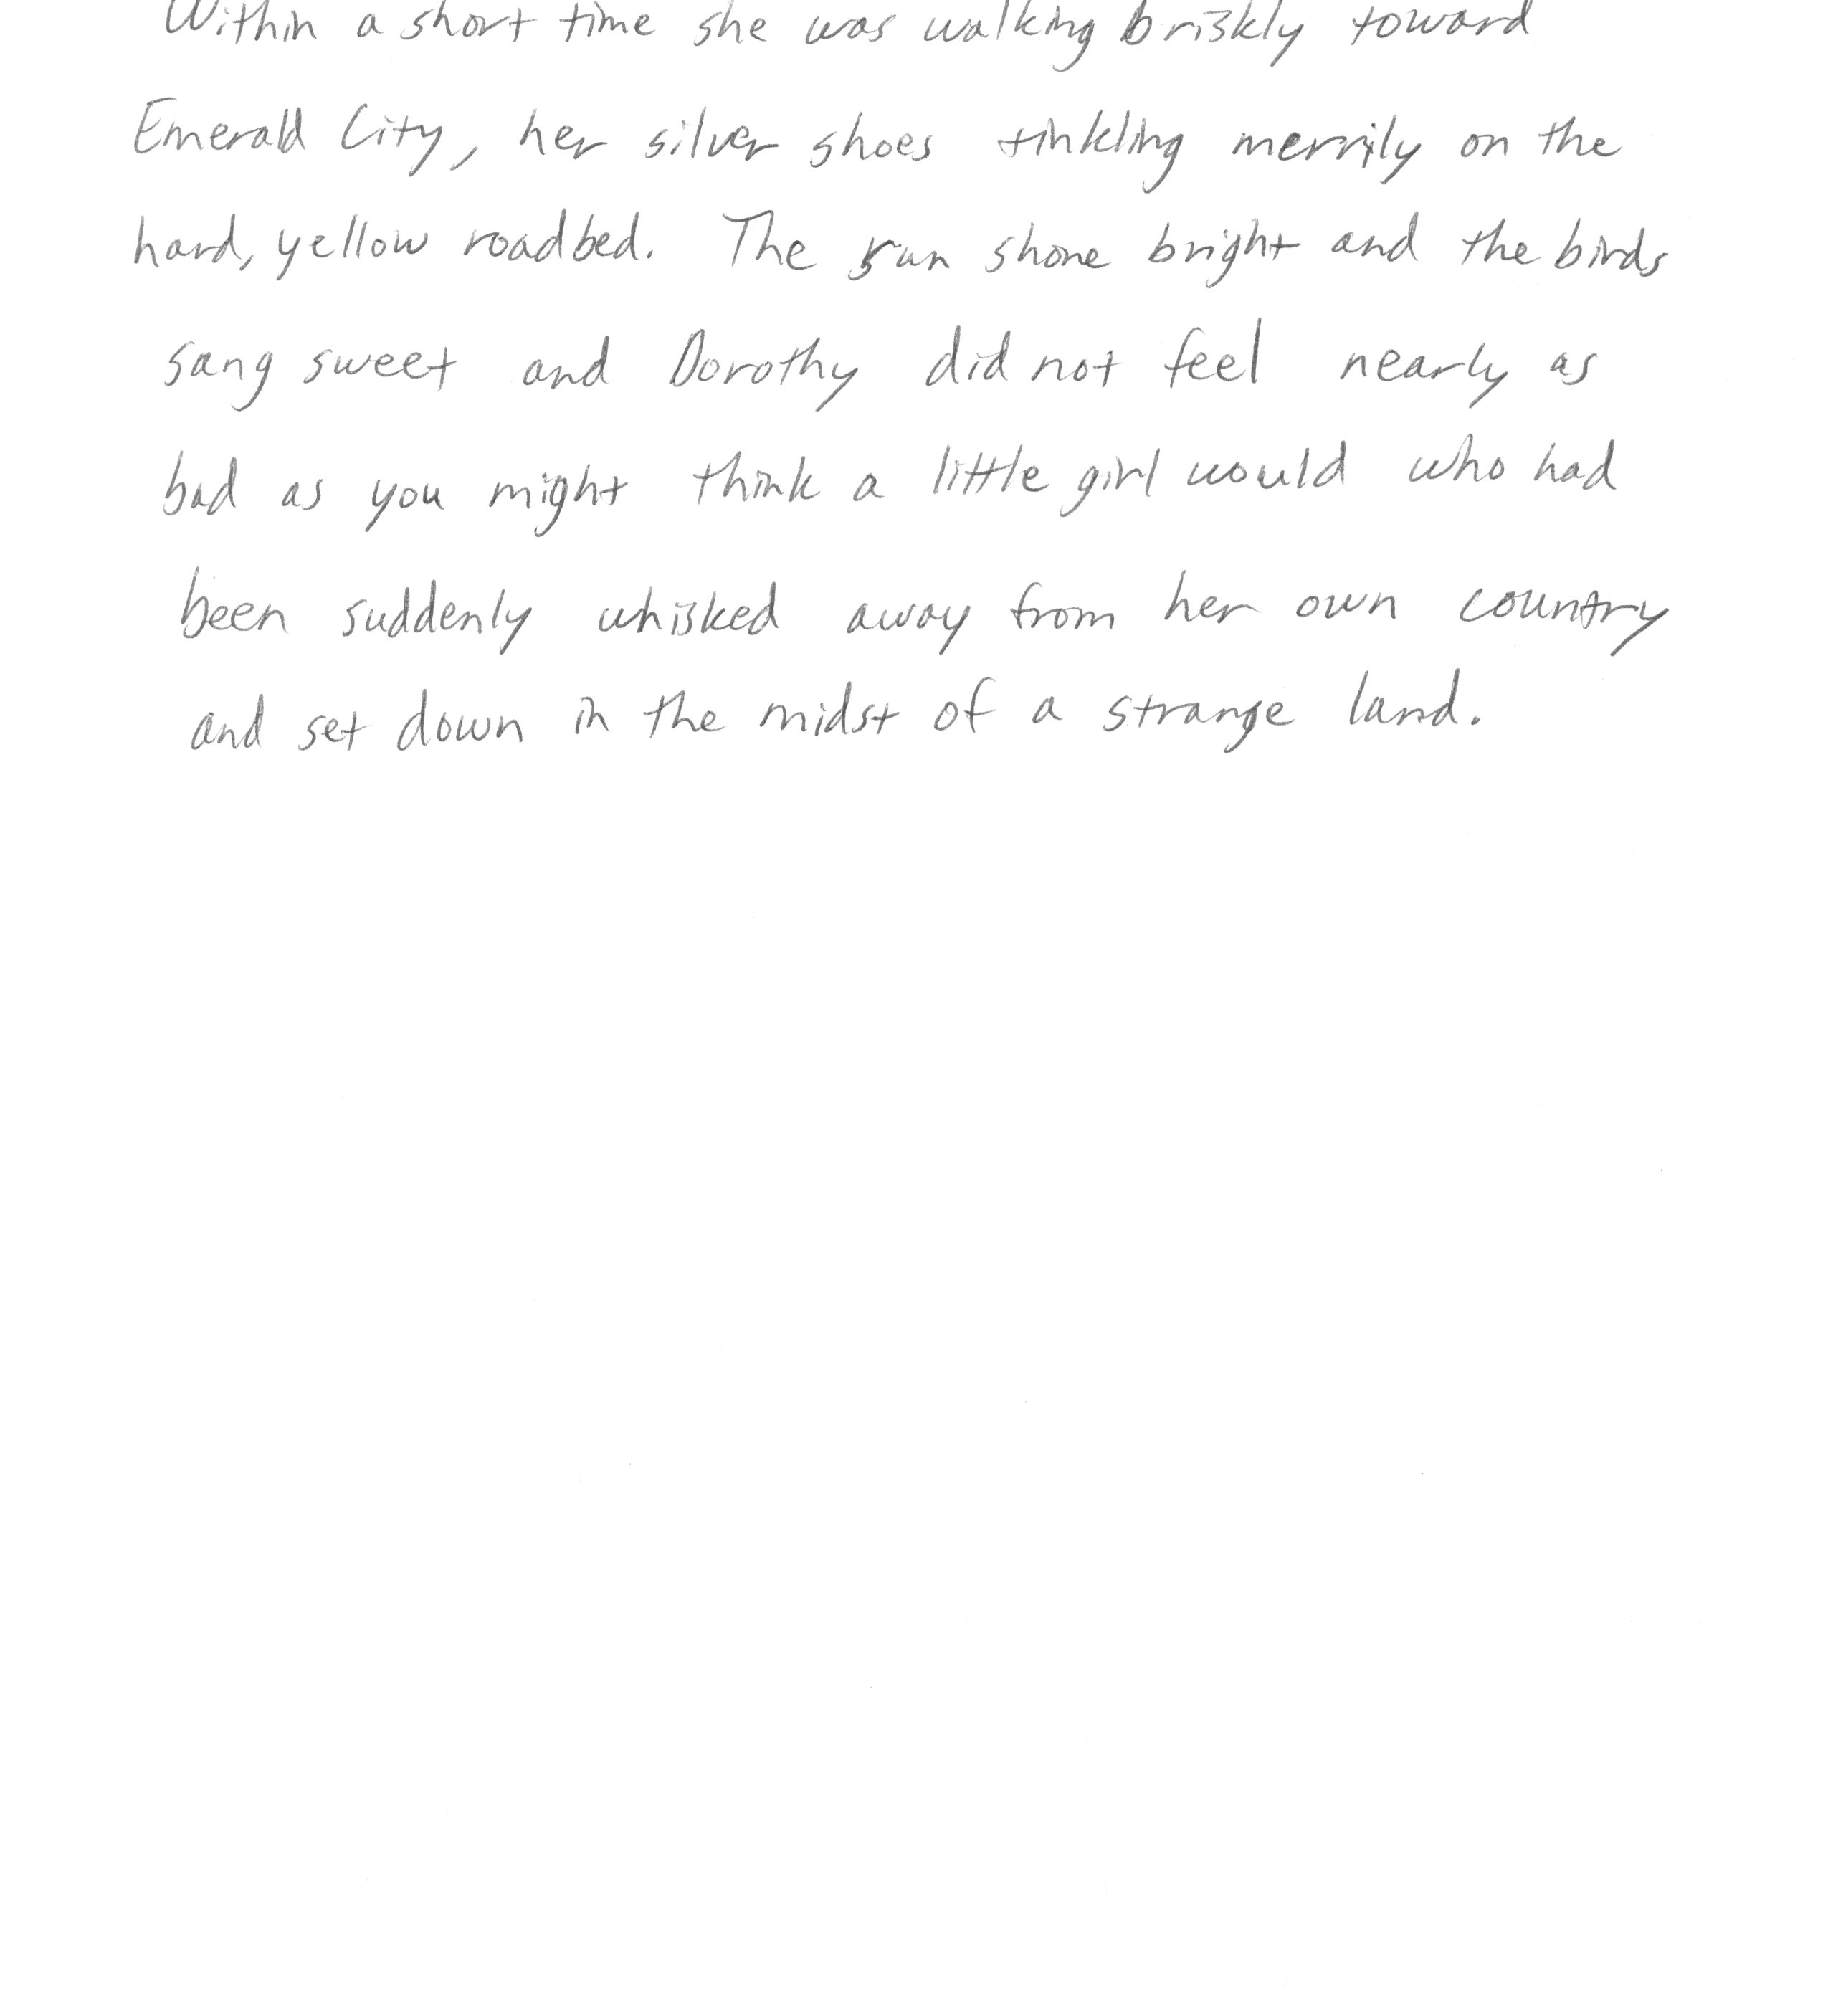 Within a short time she was walking briskly toward
Emerald City, her silver shoes tinkling merrily on the
hard, yellow roadbed. The sun shone bright and the birds
sang sweet and Dorothy did not feel nearly as
bad as you might think a little girl would who had
been suddenly whisked away from her own country
and set down in the midst of a strange land.